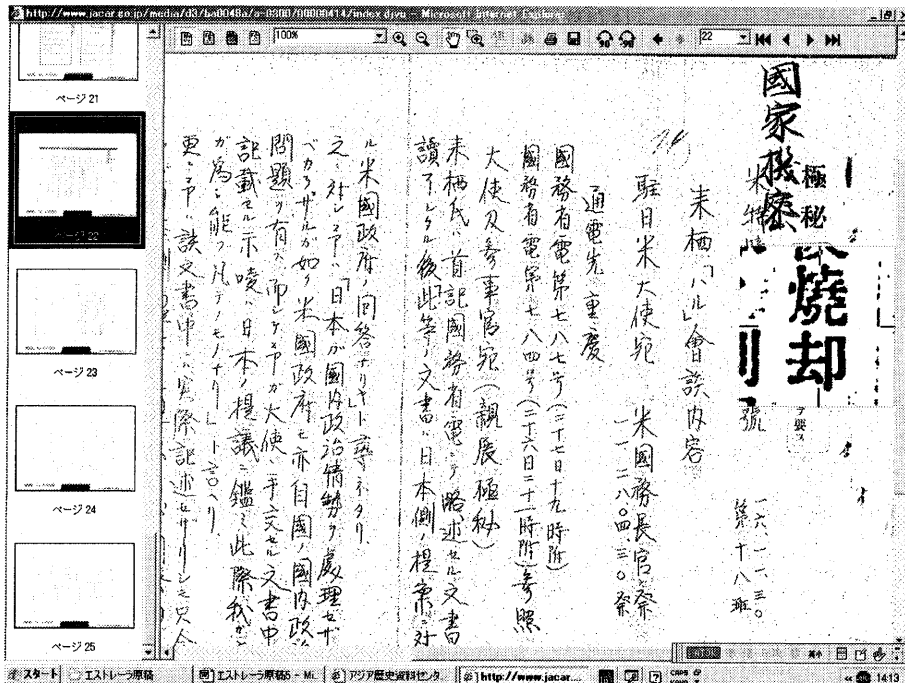 http://www.jacar.go.jp/media/d3/ba0048a/a-0300/00000414/index.djvu - Microsoft Internet Explorer
100%
22
ページ 21
ページ 22
ページ 23
ページ 24
ページ 25
國家機密
極秘
焼却
ヲ要ス
號
一六、一一、三〇
第十八班
来栖「ハル」會談内容
駐日米大使宛 米國務長官発
一一、二八〇四、三〇発
通電先 重慶
國務省電第七八七号(二十七日十九時附)
國務省電第七八四号(二十六日二十一時附)参照
大使及参事官宛(親展極秘)
来栖氏ハ首記國務省電ニテ略述セル文書
讀了シタル後此等ノ文書ハ日本側ノ提案ニ対
ル米國政府ノ回答ナリキト尋ネタリ
之ニ対シ「日本ガ國内政治情勢ヲ處理セザ
ベカラザルガ如ク米國政府モ亦自國ノ國内政
問題ヲ有ス 大使ニ手交セル文書中
記載セル示唆ハ日本ノ提議ニ鑑ミ此際我ガ
ガ為シ能フ凡テノモノナリ」ト言ヘリ
更ニ 該文書中ニ実際記述セザリシ
スタート
エストレーラ原稿
エストレーラ原稿5 - Mi...
アジア歴史資料センタ...
http://www.jacar....
CAPS
14:13